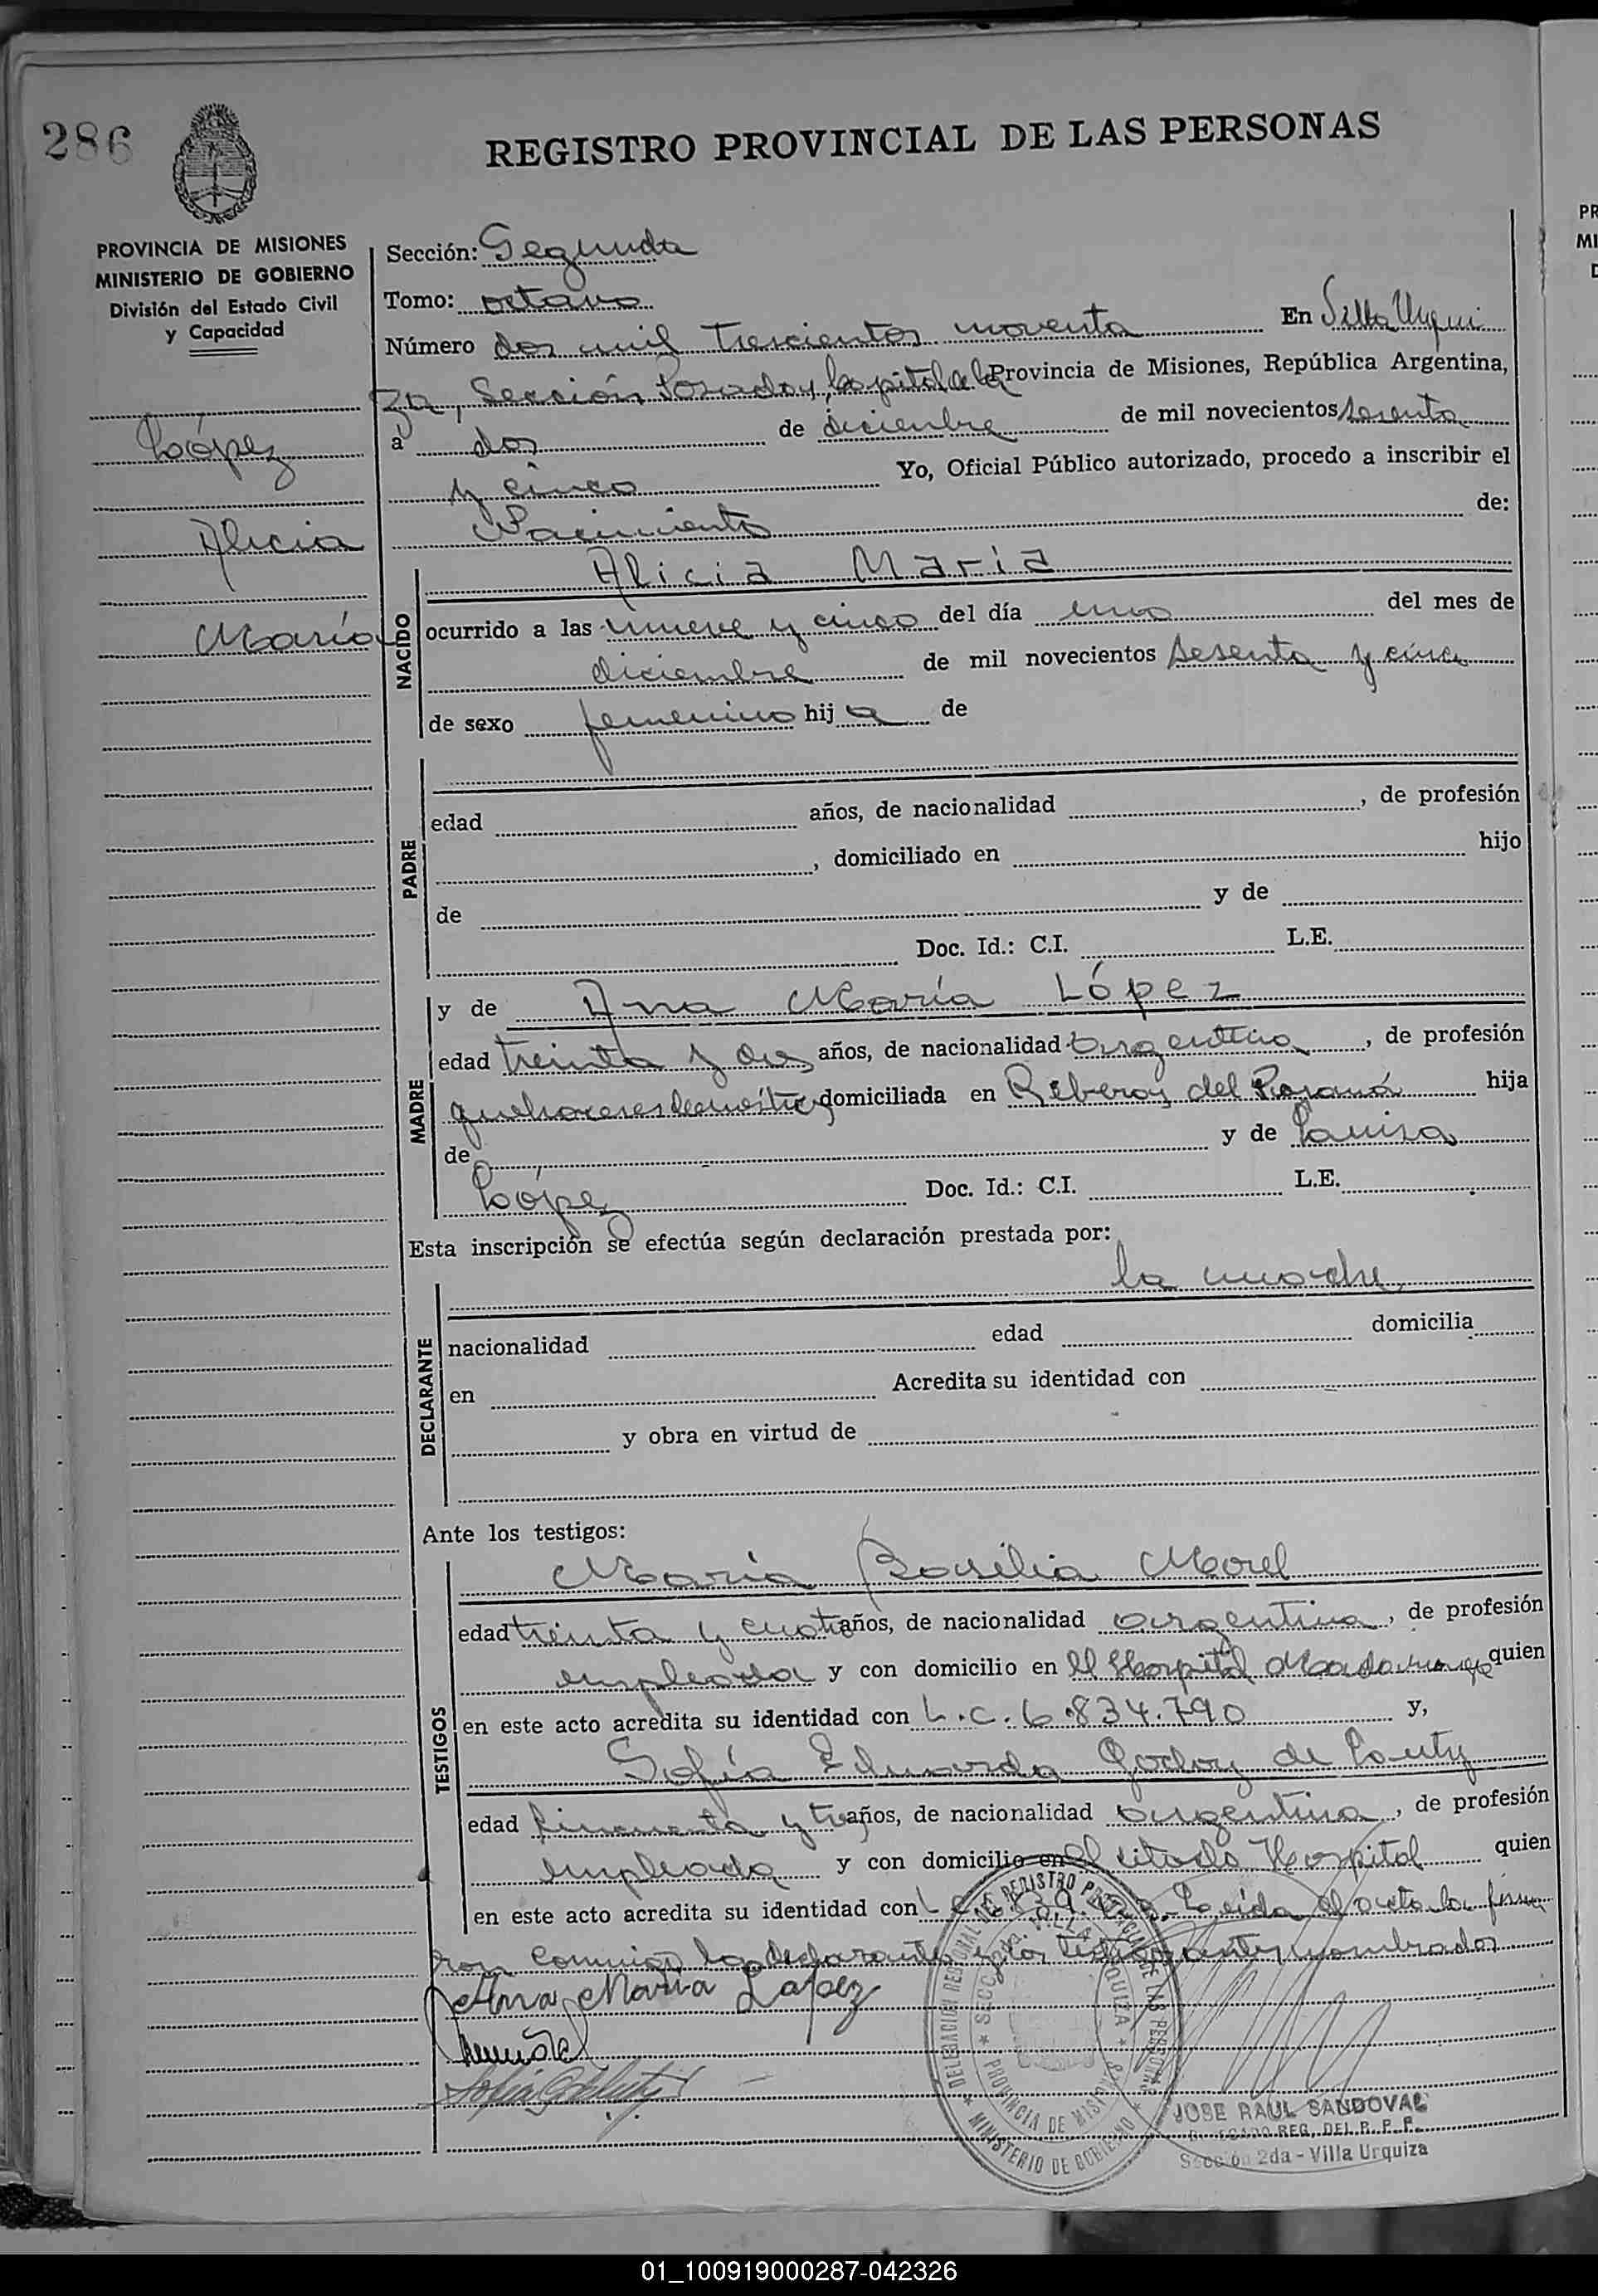 286
REGISTRO PROVINCIAL DE LAS PERSONAS
PROVINCIA DE MISIONES
MINISTERIO DE GOBIERNO
División del Estado Civil
y Capacidad
López
Alicia
María
Sección: Segunda
Tomo: octavo
Número dos mil trescientos noventa En Villa Urqui
za, Sección Posadas, Capital de la Provincia de Misiones, República Argentina,
a dos de diciembre de mil novecientos sesenta
y cinco Yo, Oficial Público autorizado, procedo a inscribir el
Nacimiento de:
NACIDO
Alicia María
ocurrido a las nueve y cinco del día uno del mes de
diciembre de mil novecientos sesenta y cinco
de sexo femenino hija de
PADRE
edad años, de nacionalidad , de profesión
, domiciliado en hijo
de y de
Doc. Id.: C.I. L.E.
MADRE
y de Ana María López
edad treinta y dos años, de nacionalidad argentina, de profesión
quehaceres domésticos domiciliada en Riberas del Paraná hija
de y de Luisa
López Doc. Id.: C.I. L.E.
Esta inscripción se efectúa según declaración prestada por:
la madre
DECLARANTE
nacionalidad edad domicilia
en Acredita su identidad con
y obra en virtud de
Ante los testigos:
TESTIGOS
María Basilia Morel
edad treinta y cuatro años, de nacionalidad argentina, de profesión
empleada y con domicilio en el Hospital Madariaga quien
en este acto acredita su identidad con L.C. 6.834.790 y,
Sofía Eduarda Godoy de
edad cincuenta y tres años, de nacionalidad argentina, de profesión
empleada y con domicilio en el citado Hospital quien
en este acto acredita su identidad con L.C. Leída el acta la firma
ron conmigo la declarante y los testigos antes nombrados
Ana María Lopez
DELEGACION REGIONAL DE REGISTRO PROVINCIAL DE LAS PERSONAS
SECC. 2da. VILLA URQUIZA
PROVINCIA DE MISIONES
MINISTERIO DE GOBIERNO
JOSE RAUL SANDOVAL
REG. DEL R. P. P.
Sección 2da - Villa Urquiza
01_100919000287-042326